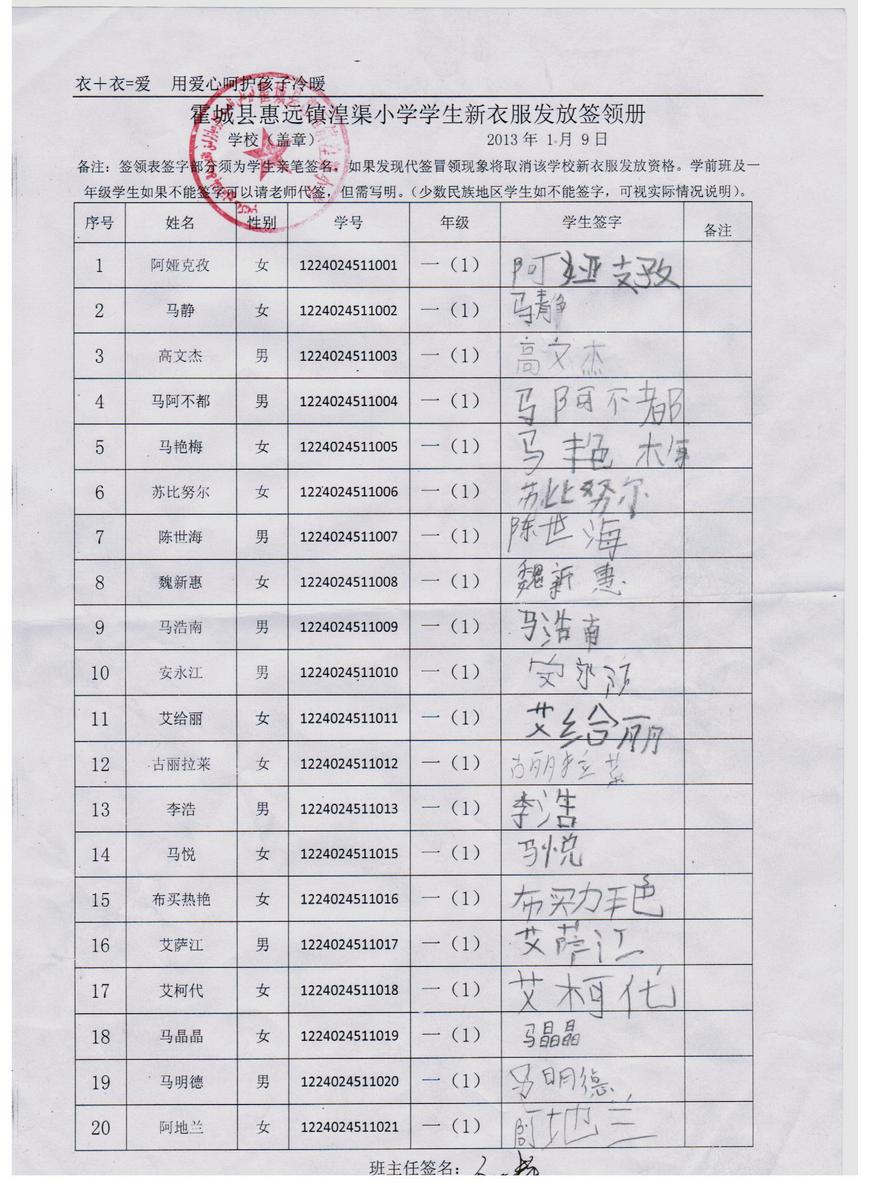 衣＋衣=爱　用爱心呵护孩子冷暖
霍城县惠远镇湟渠小学学生新衣服发放签领册
学校（盖章） 2013 年 1 月 9 日
备注：签领表签字部分须为学生亲笔签名，如果发现代签冒领现象将取消该学校新衣服发放资格。学前班及一
年级学生如果不能签字可以请老师代签，但需写明。（少数民族地区学生如不能签字，可视实际情况说明）。
序号 姓名 性别 学号 年级 学生签字 备注
1 阿娅克孜 女 1224024511001 一（1） 阿娅支孜
2 马静 女 1224024511002 一（1） 马静
3 高文杰 男 1224024511003 一（1） 高文杰
4 马阿不都 男 1224024511004 一（1） 马阿不都
5 马艳梅 女 1224024511005 一（1） 马艳梅
6 苏比努尔 女 1224024511006 一（1） 苏比努尔
7 陈世海 男 1224024511007 一（1） 陈世海
8 魏新惠 女 1224024511008 一（1） 魏新惠
9 马浩南 男 1224024511009 一（1） 马浩南
10 安永江 男 1224024511010 一（1） 安永
11 艾给丽 女 1224024511011 一（1） 艾给丽
12 古丽拉莱 女 1224024511012 一（1） 古丽拉莱
13 李浩 男 1224024511013 一（1） 李浩
14 马悦 女 1224024511015 一（1） 马悦
15 布买热艳 女 1224024511016 一（1） 布买力艳
16 艾萨江 男 1224024511017 一（1） 艾萨江
17 艾柯代 女 1224024511018 一（1） 艾柯代
18 马晶晶 女 1224024511019 一（1） 马晶晶
19 马明德 男 1224024511020 一（1） 马明德
20 阿地兰 女 1224024511021 一（1） 阿地兰
班主任签名：